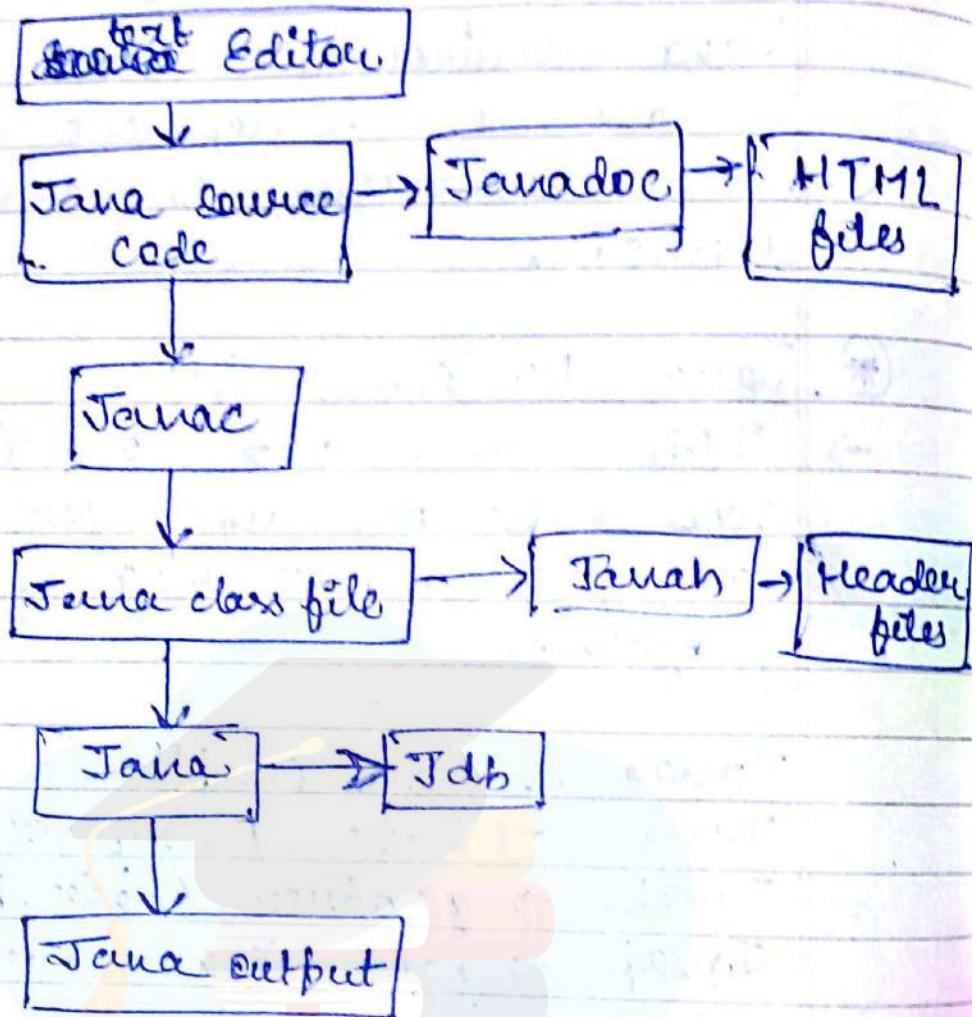 text Editor
Java source
code
Javadoc
HTML
files
Javac
Java class file
Javah
Header
files
Java
Jdb
Java output